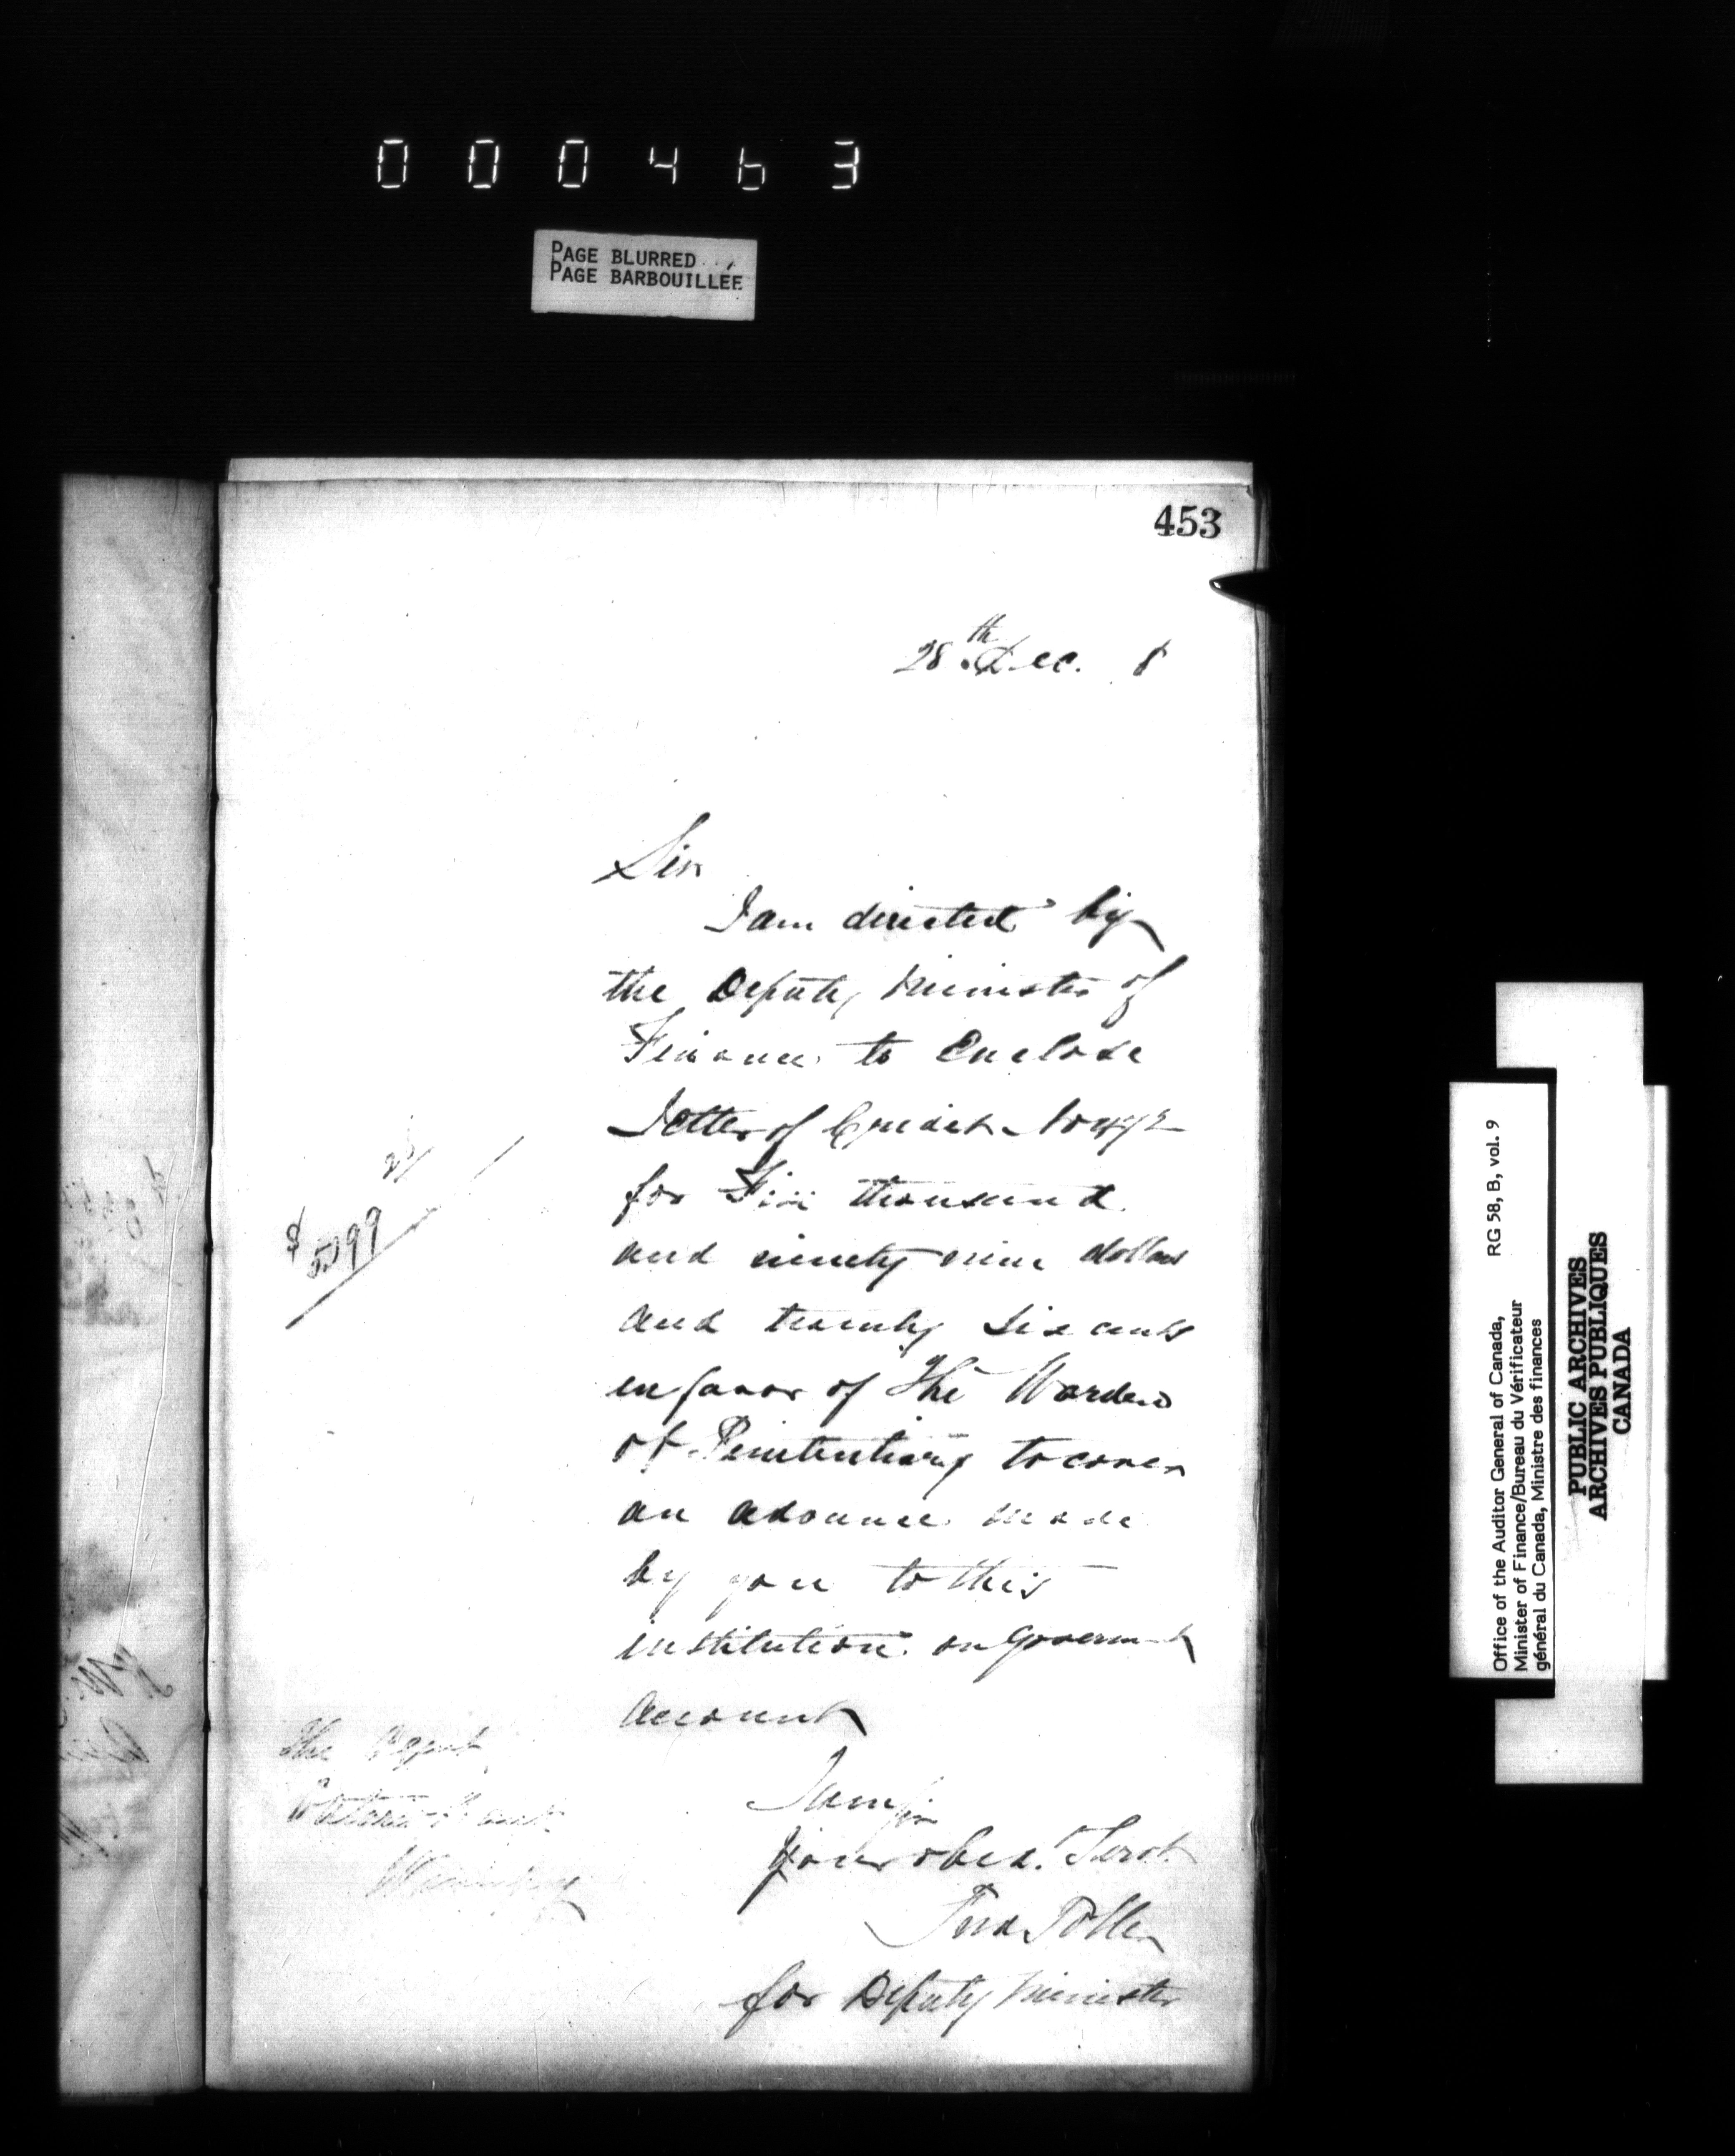 000463
PAGE BLURRED
PAGE BARBOUILLÉE
453
28th Dec. 8
Sir
I am directed by
the Deputy Minister of
Finance to Enclose
Letter of Credit No
for Five thousand
and ninety nine dollars
and twenty six cents
in favor of The Warden
of Penitentiary to cover
an advance made
by you to this
institution on Government
account
$5099
The Agent
Ontario Bank
Winnipeg
I am Sir
Your obed. Servt
for Deputy Minister
Office of the Auditor General of Canada,
Minister of Finance/Bureau du Vérificateur
général du Canada, Ministre des finances
RG 58, B, vol. 9
PUBLIC ARCHIVES
ARCHIVES PUBLIQUES
CANADA